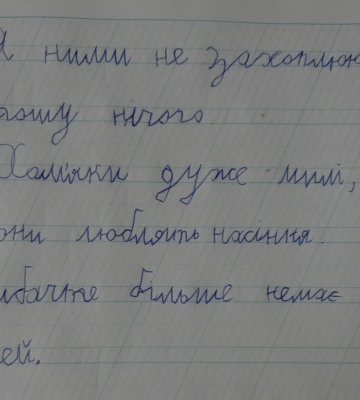 Я ними не захоплюю
пошу нічого.
Хом'яки дуже милі,
они люблять насіння.
ибачте більше немає
ей.